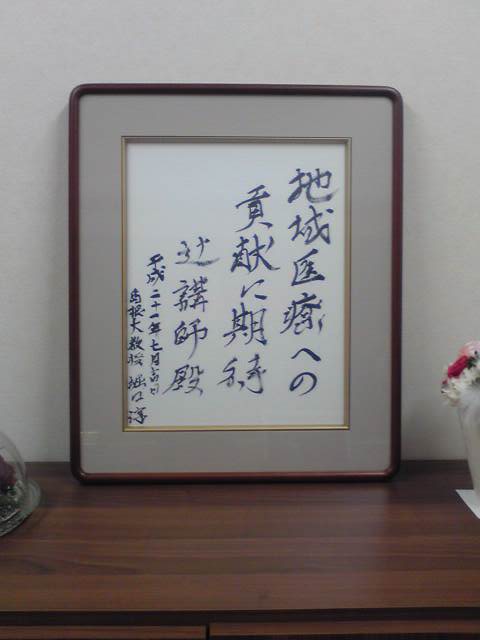 地域医療への
貢献に期待
辻講師殿
平成二十一年七月吉日
島根大教授 堀口淳